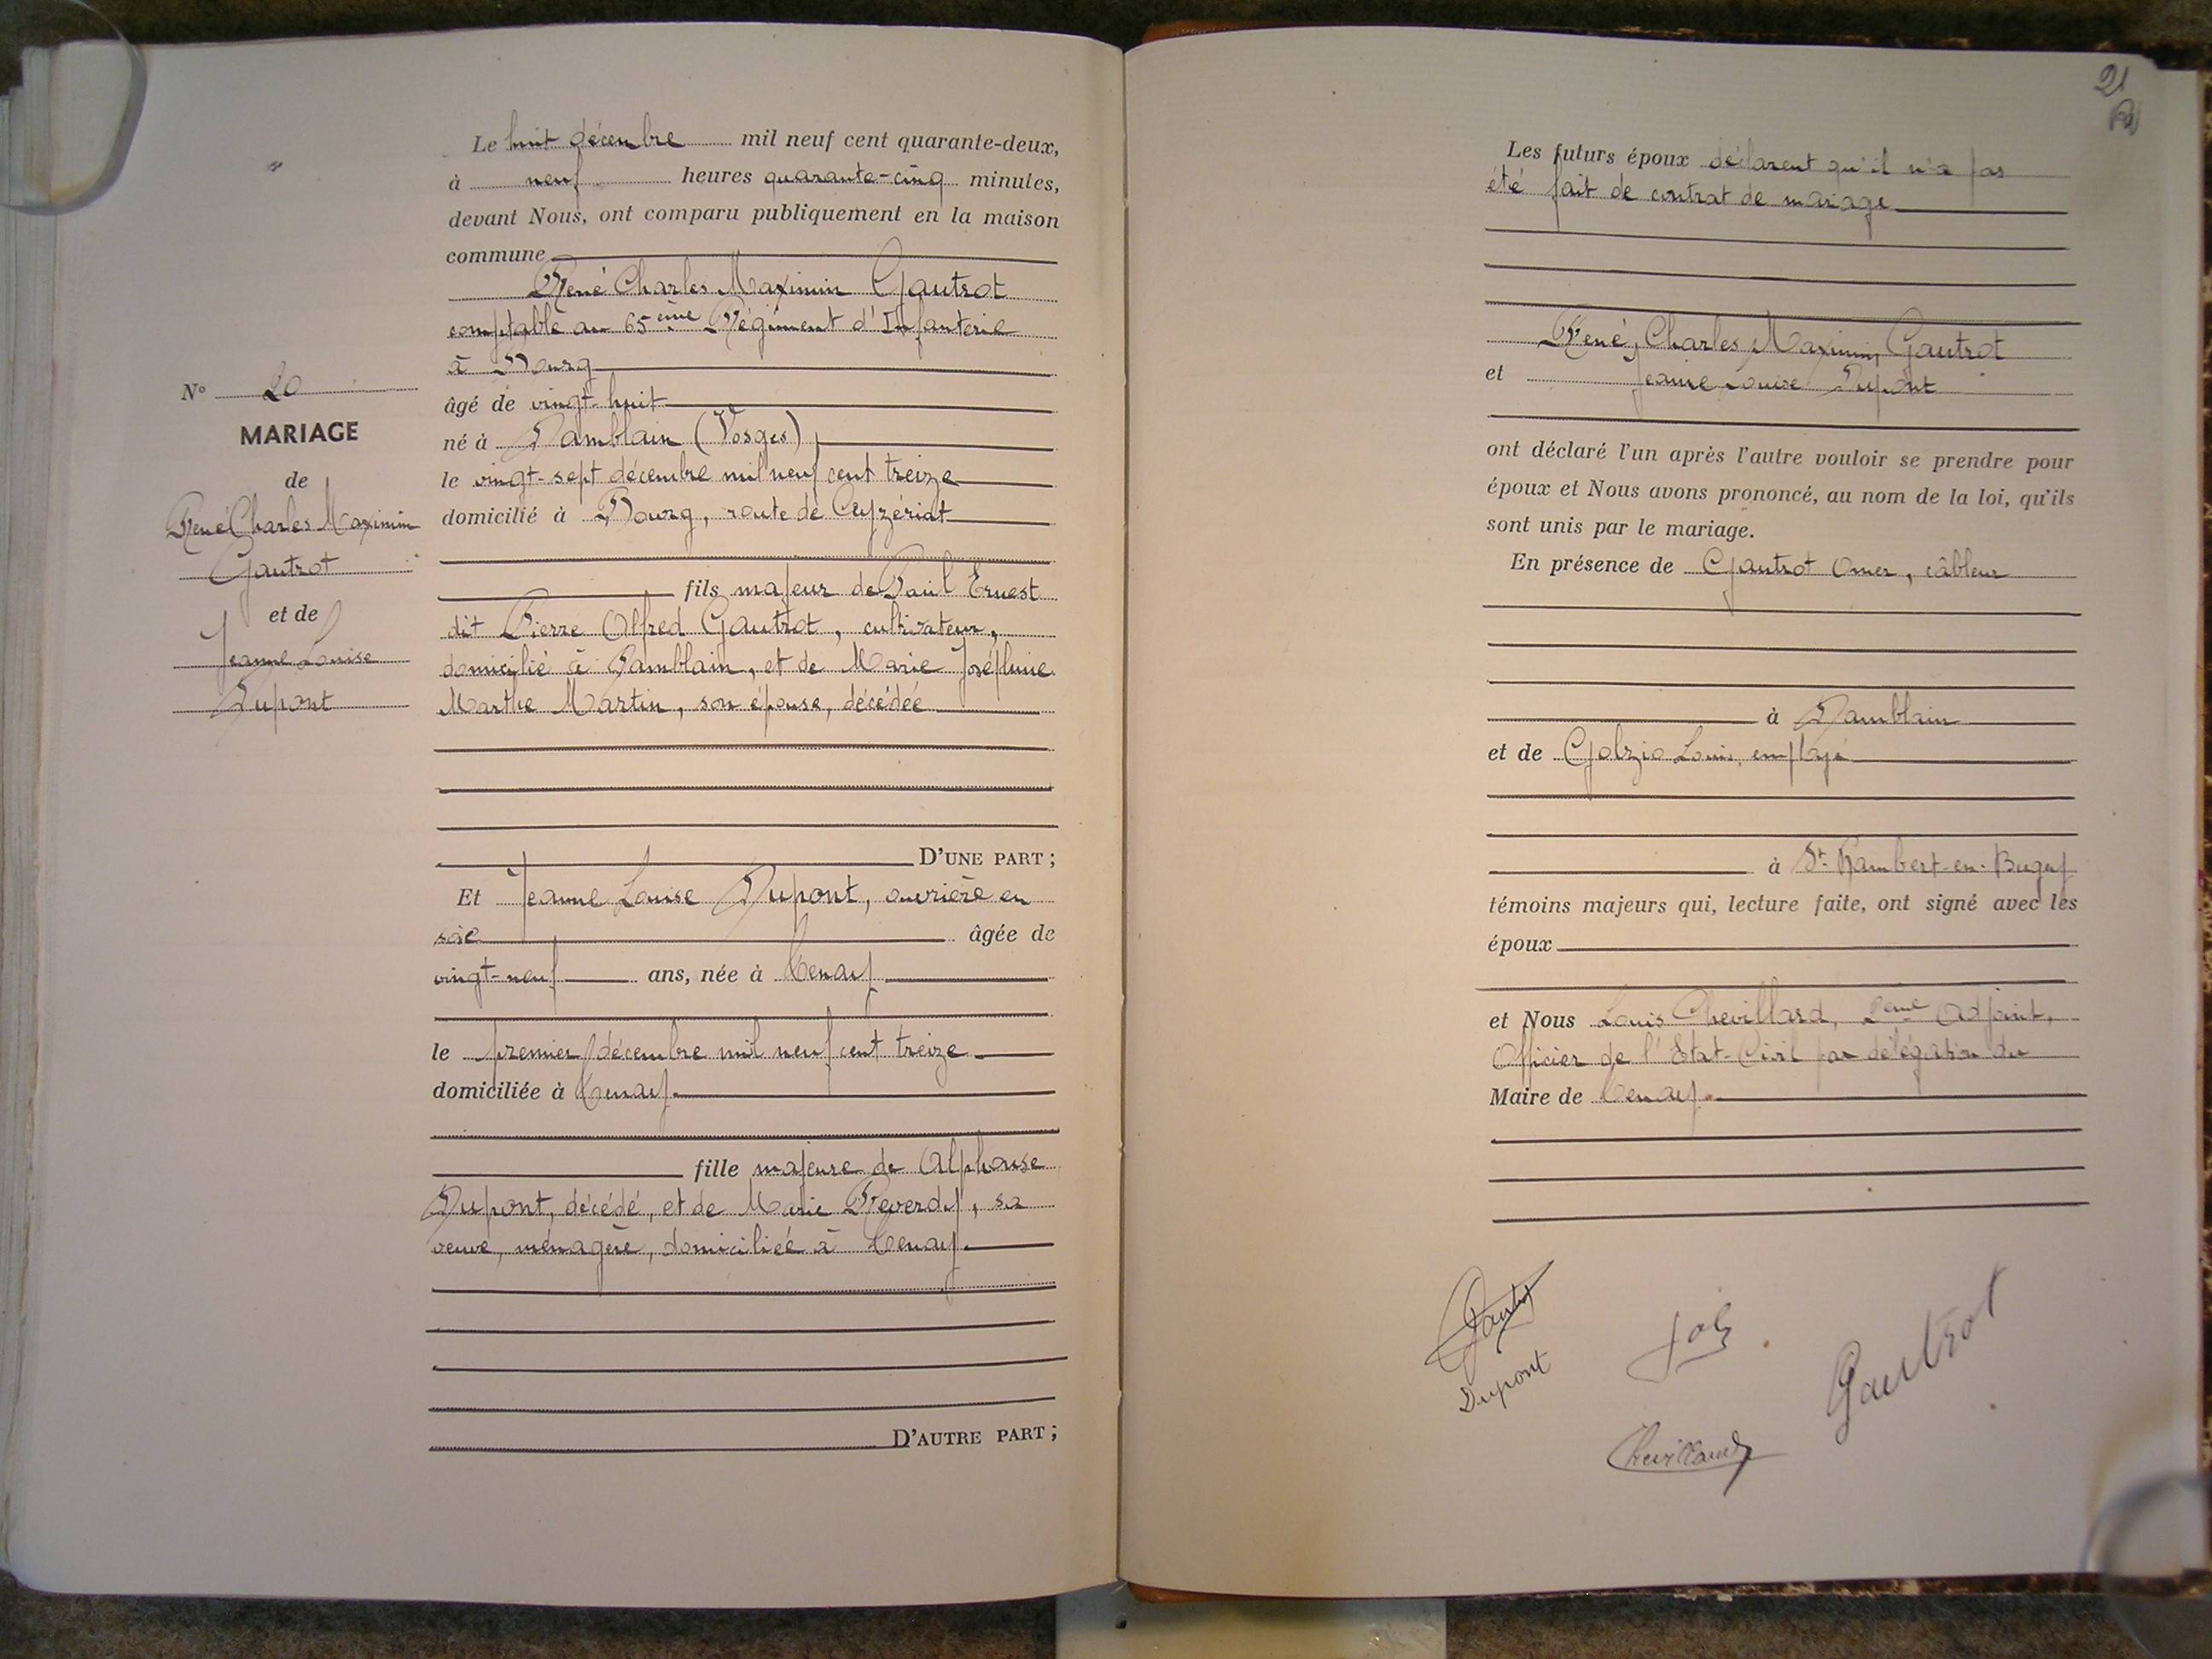 Le huit décembre mil neuf cent quarante-deux,
à neuf heures quarante-cinq minutes,
devant Nous, ont comparu publiquement en la maison
commune
René Charles Maximin Gautrot
comptable au 65ème Régiment d'Infanterie
à Bourg
âgé de vingt-huit
né à Damblain (Vosges)
le vingt-sept décembre mil neuf cent treize
domicilié à Bourg, route de Ceyzériat
fils majeur de Paul Ernest
dit Pierre Alfred Gautrot, cultivateur,
domicilié à Damblain, et de Marie Joséphine
Marthe Martin, son épouse, décédée
D'UNE PART ;
N° 20
MARIAGE
de
René Charles Maximin
Gautrot
et de
Jeanne Louise
Dupont
Et Jeanne Louise Dupont, ouvrière en
soie âgée de
vingt-neuf ans, née à Tenay
le premier décembre mil neuf cent treize
domiciliée à Tenay.
fille majeure de Alphonse
Dupont, décédé, et de Marie Reverdy, sa
veuve, ménagère, domiciliée à Tenay.
D'AUTRE PART ;
21
Les futurs époux déclarent qu'il n'a pas
été fait de contrat de mariage
René, Charles, Maximin, Gautrot
et Jeanne Louise Dupont
ont déclaré l'un après l'autre vouloir se prendre pour
époux et Nous avons prononcé, au nom de la loi, qu'ils
sont unis par le mariage.
En présence de Gautrot Omer, câbleur
à Damblain
et de Golzio Louis, employé
à St-Rambert-en-Bugey
témoins majeurs qui, lecture faite, ont signé avec les
époux
et Nous Louis Chevillard, 2ème Adjoint,
Officier de l'Etat-Civil par délégation du
Maire de Tenay.
Gautrot
Dupont
Gautrot
Chevillard